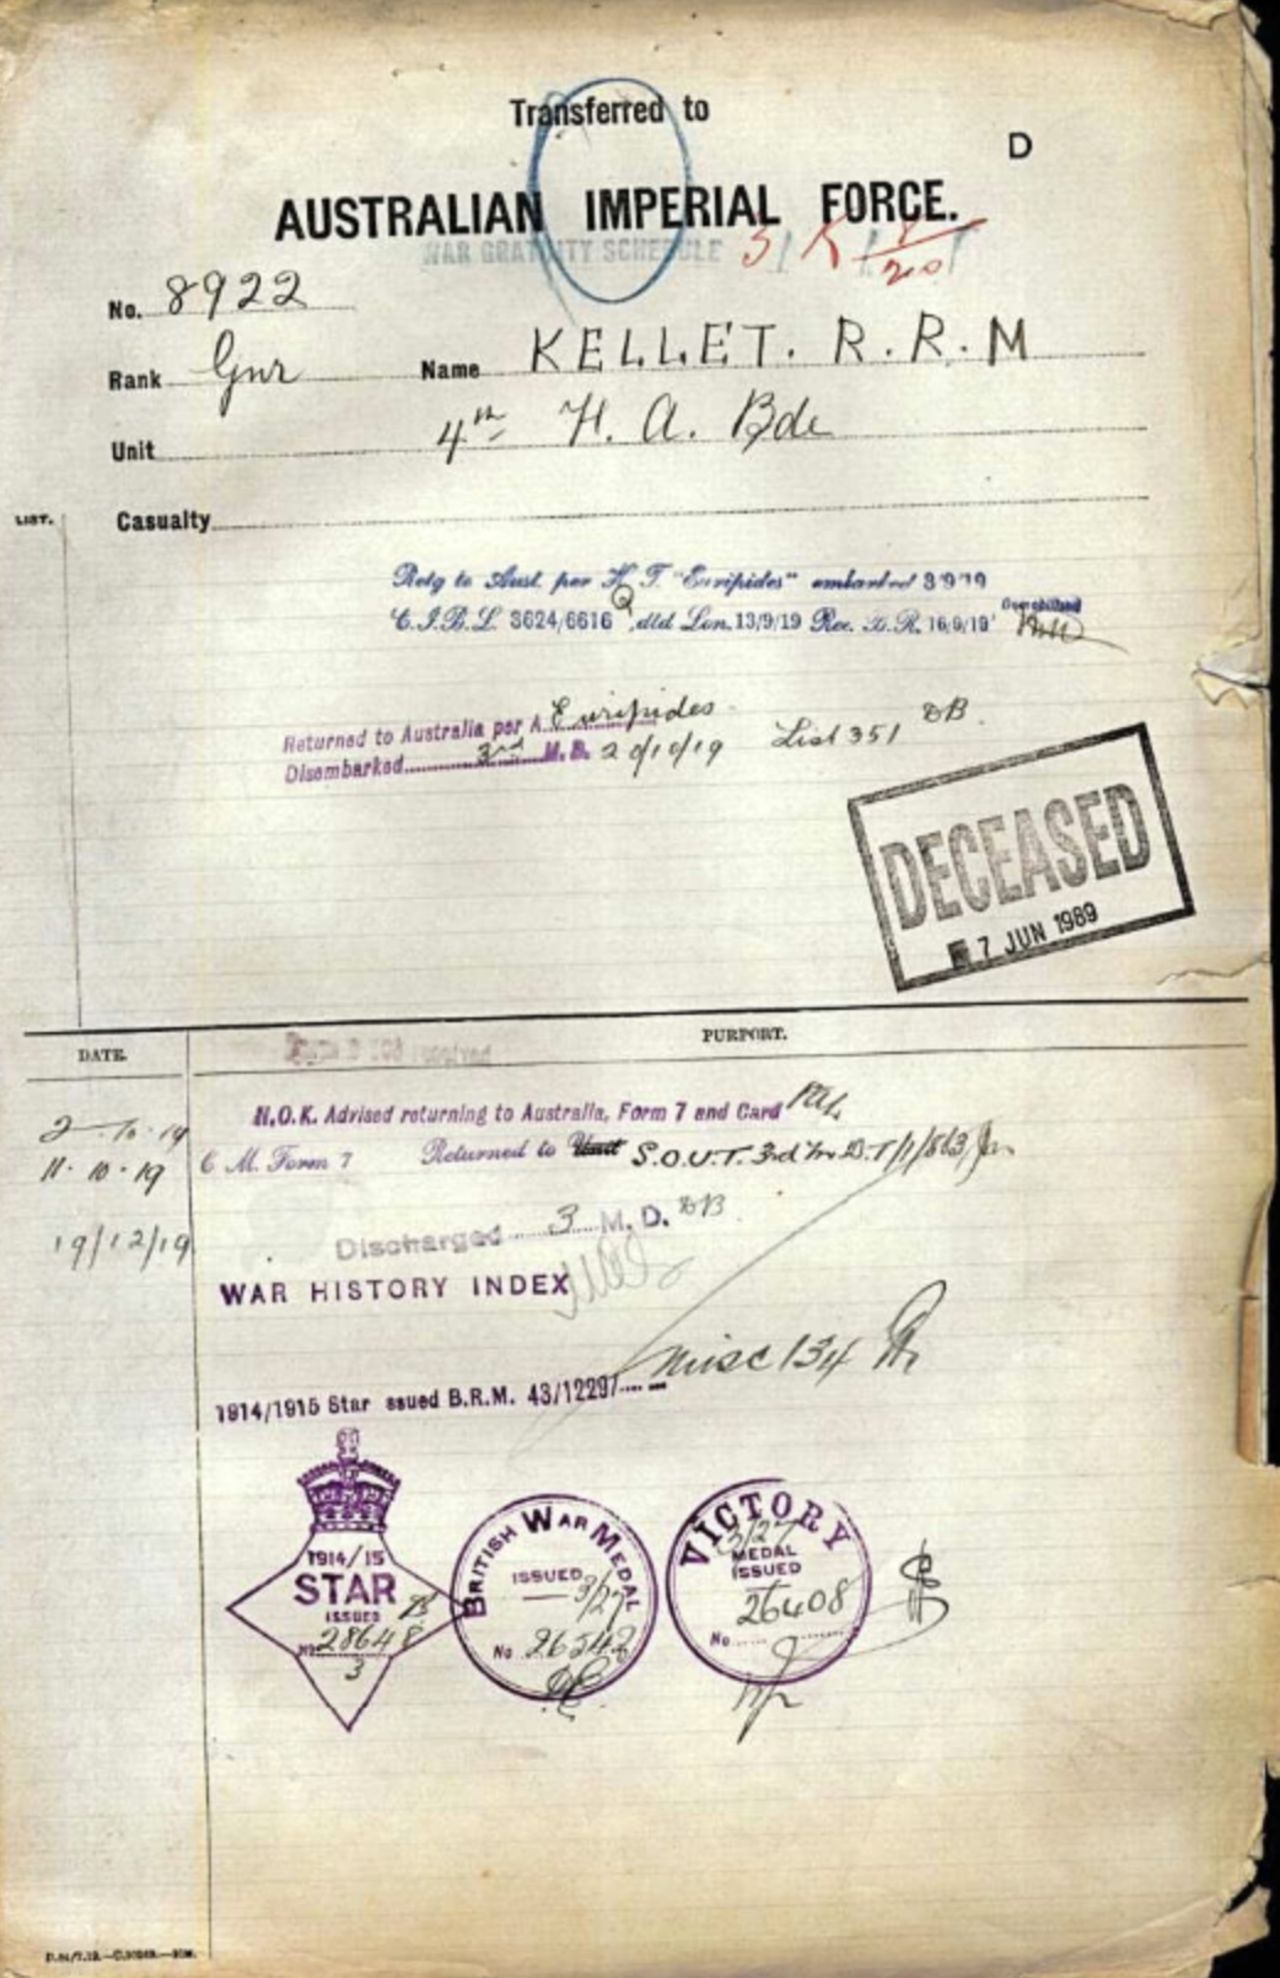 Transferred to
D
AUSTRALIAN IMPERIAL FORCE.
WAR GRATUITY SCHEDULE
No. 8922
Rank Gnr Name KELLET. R. R. M
Unit 4th H. A. Bde
LIST.
Casualty
Retg to Aust. per H. T. "Euripides" embarked 3/9/19
C.I.B.L. 3624/6616 Q dtd Lon. 13/9/19 Rec. D.R. 16/9/19
Returned to Australia per A Euripides
List 351 DB.
Disembarked 3rd M.D. 20/10/19
DECEASED
7 JUN 1989
DATE.
PURPORT.
2-10-19 N.O.K. Advised returning to Australia, Form 7 and Card
11.10.19 C. M. Form 7 Returned to Unit S.O.U.T. 3rd
19/12/19 Discharged 3 M. D. DB
WAR HISTORY INDEX
misc 134
1914/1915 Star issued B.R.M. 43/12297
1914/15
STAR
ISSUED
No 28648
3
BRITISH WAR MEDAL
ISSUED
3/27
No 26542
VICTORY
3/27
MEDAL
ISSUED
26408
No